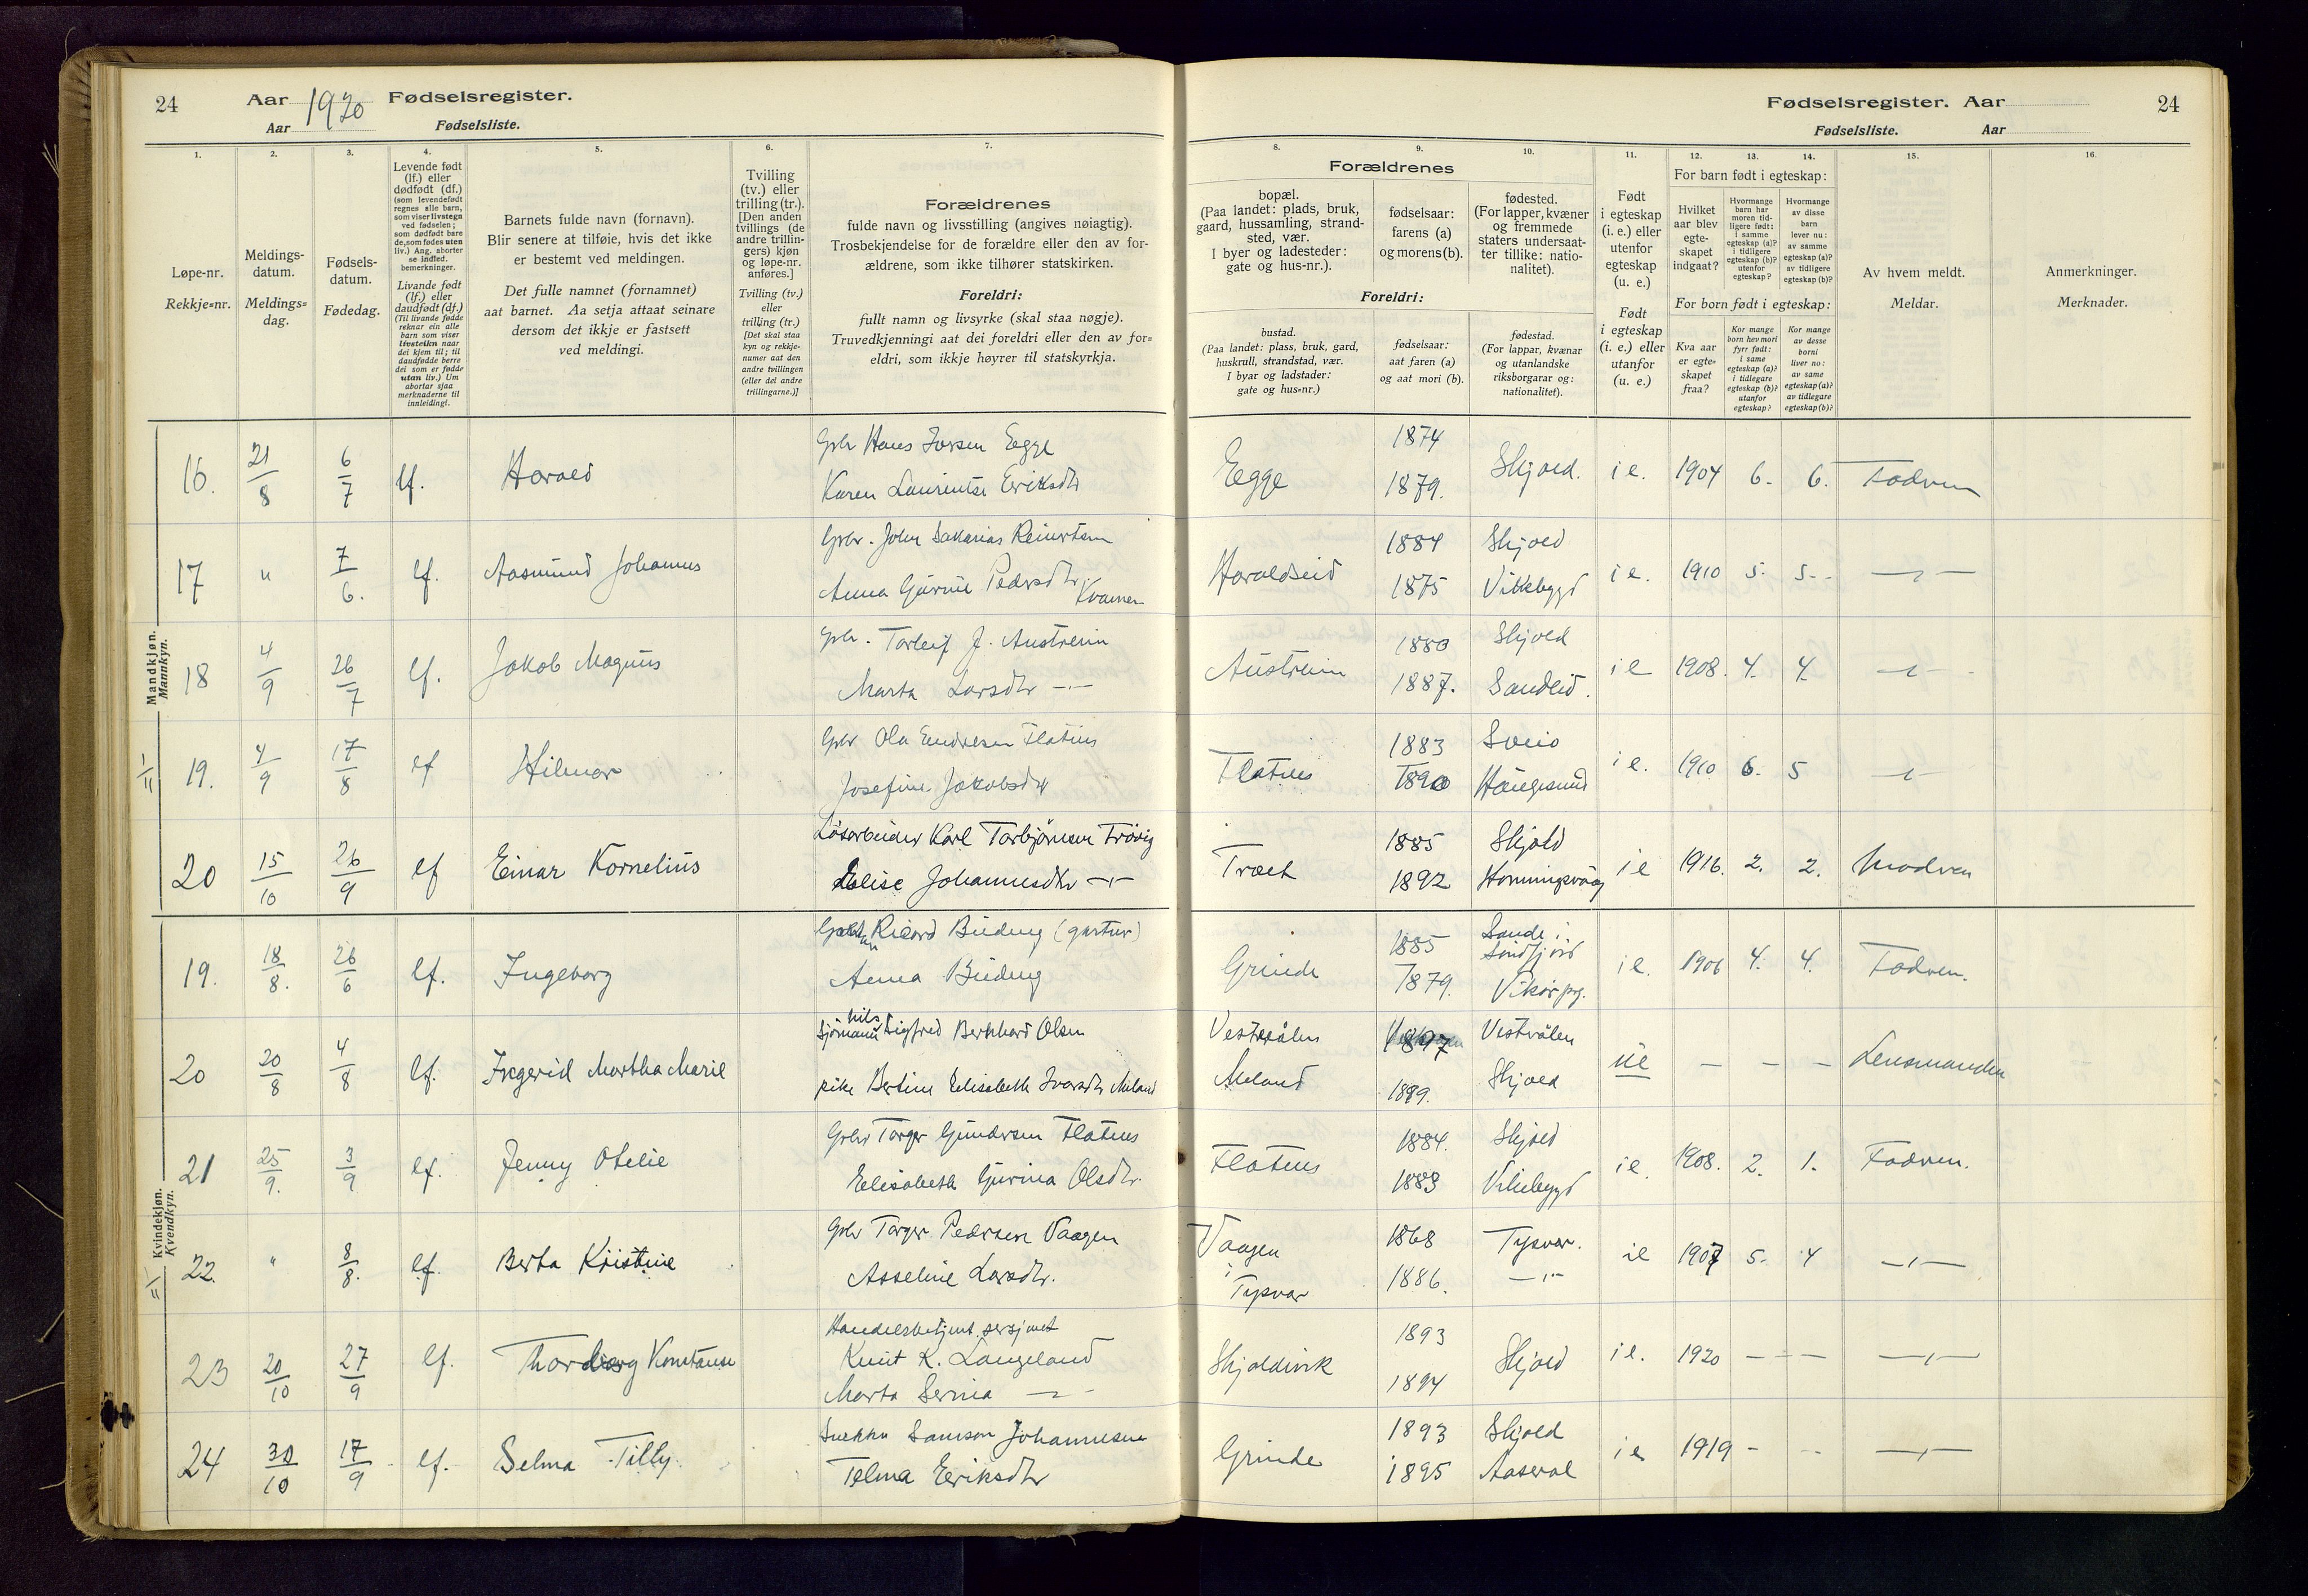 24 Aar 1920 Fødselsregister.
Aar Fødselsliste.
Fødselsregister. Aar 24
Fødselsliste. Aar
1. 2. 3. 4. 5. 6. 7. 8. 9. 10. 11. 12. 13. 14. 15. 16.
Løpe-nr.
Rekkje=nr.
Meldings-
datum.
Meldings=
dag.
Fødsels-
datum.
Fødedag.
Levende født
(lf.) eller
dødfødt (df.)
(som levendefødt
regnes alle barn,
som viser livstegn
ved fødselen;
som dødfødt bare
de, som fødes uten
liv.) Ang. aborter
se indled.
bemerkninger.
Livande født
(lf.) eller
daudfødt (df.)
(Til livande fødde
reknar ein alle
barn som viser
livsteikn naar
dei kjem til; til
daudfødde berre
dei som er fødde
utan liv.) Um
abortar sjaa
merknaderne til
innleidingi.
Barnets fulde navn (fornavn).
Blir senere at tilføie, hvis det ikke
er bestemt ved meldingen.
Det fulle namnet (fornamnet)
aat barnet. Aa setja attaat seinare
dersom det ikkje er fastsett
ved meldingi.
Tvilling
(tv.) eller
trilling (tr.).
[Den anden
tvillings (de
andre trillin-
gers) kjøn
og løpe-nr.
anføres.]
Tvilling (tv.)
eller
trilling (tr.)
[Det skal staa
kyn og rekkje-
numer aat den
andre tvillingen
(eller dei andre
trillingarne.)]
Forældrenes
fulde navn og livsstilling (angives nøiagtig).
Trosbekjendelse for de forældre eller den av for-
ældrene, som ikke tilhører statskirken.
Foreldri:
fullt namn og livsyrke (skal staa nøgje).
Truvedkjenningi aat dei foreldri eller den av for=
eldri, som ikkje høyrer til statskyrkja.
Forældrenes
bopæl.
(Paa landet: plads, bruk,
gaard, hussamling, strand-
sted, vær.
I byer og ladesteder:
gate og hus-nr.).
fødselsaar:
farens (a)
og morens (b).
fødested.
(For lapper, kvæner
og fremmede
staters undersaat-
ter tillike: natio-
nalitet).
Foreldri:
bustad.
(Paa landet: plass, bruk, gard,
huskrull, strandstad, vær.
I byar og ladstader:
gate og hus=nr.)
fødselsaar:
aat faren (a)
og aat mori (b).
fødestad.
(For lappar, kvænar
og utanlandske
riksborgarar og:
nationalitet).
Født
i egteskap
(i. e.) eller
utenfor
egteskap
(u. e.)
Født
i egteskap
(i. e.) eller
utanfor
(u. e.)
For barn født i egteskap:
Hvilket
aar blev
egte-
skapet
indgaat?
Hvormange
barn har
moren tid-
ligere født:
i samme
egteskap (a)?
i tidligere
egteskap (b)?
utenfor
egteskap?
Hvormange
av disse
barn
lever nu:
av samme
egteskap (a)?
av tidligere
egteskap (b)?
For born født i egteskap:
Kva aar
er egte-
skapet
fraa?
Kor mange
born hev mori
fyrr født:
i same
egteskap (a)?
i tidlegare
egteskap (b)?
utanfor
egteskap?
Kor mange
av desse
borni
liver no:
av same
egteskap (a)?
av tidlegare
egteskap (b)?
Av hvem meldt.
Meldar.
Anmerkninger.
Merknader.
Mandkjøn.
Mannkyn.
16. 21/8 6/7 lf. Harald Gbr Hans Iversen Eegge
Karen Laurentse Eriksdtr
Eegge 1874 1879. Skjold. i e. 1904 6. 6. Fadren
17 " 7/6. lf. Aasmund Johannes Gbr. John Sakarias Reinertsen
Anna Gurine Pedersdtr. Kvamen
Haraldseid 1884 1875 Skjold Vikebygd i e. 1910 5. 5. -"-
18 4/9 26/7 lf. Jakob Magnus Gbr. Torleif J. Austrheim
Marta Larsdtr -"-
Austreim 1880 1887. Skjold Sandeid. i e 1908. 4. 4. -"-
19. 4/9 17/8 lf Hilmar Gbr Ola Endresen Flatnes
Josefine Jakobsdtr
Flatnes 1883 1890 Sveio Haugesund i e. 1910 6. 5 -"-
20 15/10 26/9 lf Einar Kornelius Løsarbeider Karl Torbjørnsen Frøvig
Elise Johannesdtr -"-
Traet 1885 1892 Skjold Honningsvåg i e 1916. 2. 2. Modren
Kvindekjøn.
Kvendkyn.
19. 18/8. 26/6 lf. Ingeborg Ricard Buding (gartner)
Anna Buding
Grinde 1885 1879. Sande i Sundfjord Vikør pg. i e. 1906 4. 4. Fadren.
20 20/8 4/8 lf. Ingerid Martha Marie Sjømann Nils Sigfred Bernhard Olsen
pike Bertine Elisabeth Ivarsdtr Meland
Vesterålen Meland 1897 1899. Vestrålen Skjold ue - - - Lensmanden
21 25/9. 3/9 lf. Jenny Otelie Gbr Torger Gundersen Flatnes
Elisabeth Gurina Olsdtr.
Flatnes 1884. 1883 Skjold Vikebygd i e. 1908. 2. 1. Fadren.
22. " 8/8. lf. Berta Kristine Gbr Torger Pedersen Vaagen
Asseline Larsdtr.
Vaagen i Tysvær 1868 1886. Tysvær. -"- i e 1907 5. 4 -"-
23 20/10 27/9 lf. Thorborg Konstanse Handelsbetjent, sersjant
Knut K. Langeland
Marta Serina -"-
Skjoldevik 1893 1894 Skjold i e. 1920 - - - -"-
24 30/10 17/9 lf. Selma Tilly Snekker Samson Johannesen
Telma Eeriksdtr
Grinde 1893 1895 Skjold Aaseral i e 1919 - - -"-